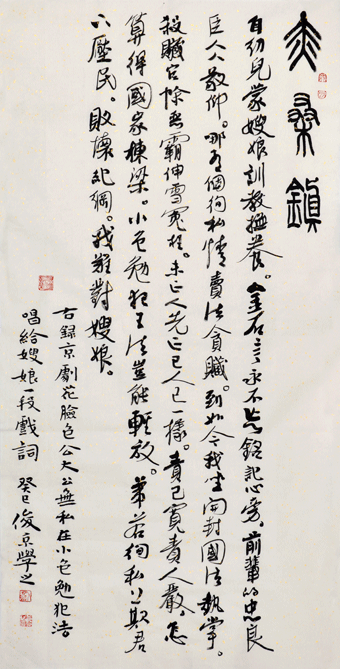 赤桑鎮
自幼兒蒙嫂娘訓教撫養。金石言永不忘銘記心旁。前輩的忠良
臣人人敬仰。哪有個徇私情賣法貪贓。到如今我坐開封國法執掌。
殺贓官除惡霸伸雪冤枉。未正人先正己人己一樣。責己寬責人嚴。怎
算得國家棟梁。小包勉犯王法豈能輕放。弟若徇私上欺君
下壓民。敗壞紀綱。我難對嫂娘。
右録京劇花臉包公大公無私在小包勉犯法
唱給嫂娘一段戲詞 癸巳 俊京學之